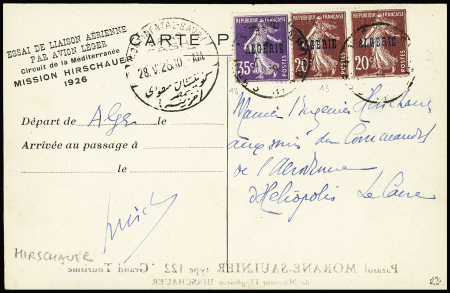 ESSAI DE LIAISON AÉRIENNE
PAR AVION LÉGER
Circuit de la Méditerranée
MISSION HIRSCHAUER
1926
CARTE P
28.V.26.10-AM
35c ALGÉRIE POSTES
20c ALGÉRIE POSTES
20c ALGÉRIE POSTES
18 13
Départ de Alger le
Arrivée au passage à
le
Monsieur l'Ingénieur Hirschauer
aux soins du Commandant
de l'Aérodrome
d'Héliopolis Le Caire
HIRSCHAUER
Parasol MORANE-SAULNIER type 122 "Grand Tourisme
de Monsieur l'Ingénieur HIRSCHAUER